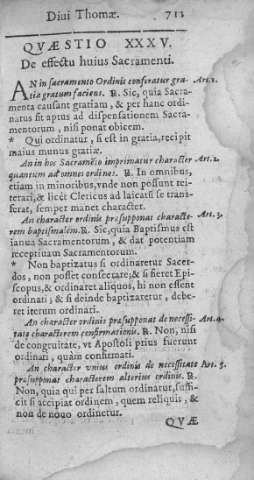 Diui Thomæ. 713
QVÆSTIO XXXV.
De effectu huius Sacramenti.
AN in sacramento Ordinis conferatur gra- Art.1.
tia gratum faciens. R. Sic, quia Sacra-
menta causant gratiam, & per hanc ordi-
natus sit aptus ad dispensationem Sacra-
mentorum, nisi ponat obicem.
* Qui ordinatur, si est in gratia, recipit
maius munus gratiæ.
An in hoc Sacramēto imprimatur character Art.2.
quantum ad omnes ordines. R. In omnibus,
etiam in minoribus, vnde non possunt rei-
terari, & licèt Clericus ad laicatū se trans-
ferat, semper manet character.
An character ordinis præsupponat characte- Art.3.
rem baptismalem. R. Sic, quia Baptismus est
ianua Sacramentorum, & dat potentiam
receptiuam Sacramentorum.
* Non baptizatus si ordinaretur Sacer-
dos, non posset consecrare; & si fieret Epi-
scopus, & ordinaret aliquos, hi non essent
ordinati; & si deinde baptizaretur, debe-
ret iterum ordinari.
An character ordinis præsupponat de necessi- Art.4.
tate characterem confirmationis. R. Non, nisi
de congruitate, vt Apostoli priùs fuerunt
ordinati, quàm confirmati.
An character vnius ordinis de necessitate Art.5.
præsupponat characterem alterius ordinis. R.
Non, quia qui per saltum ordinatur, suffi-
cit si accipiat ordinem, quem reliquis, &
non de nouo ordinetur.
QVÆ